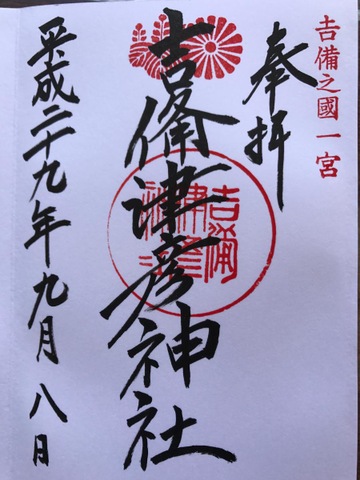 吉備之國一宮
奉拝
吉備津彦神社
平成二十九年九月八日